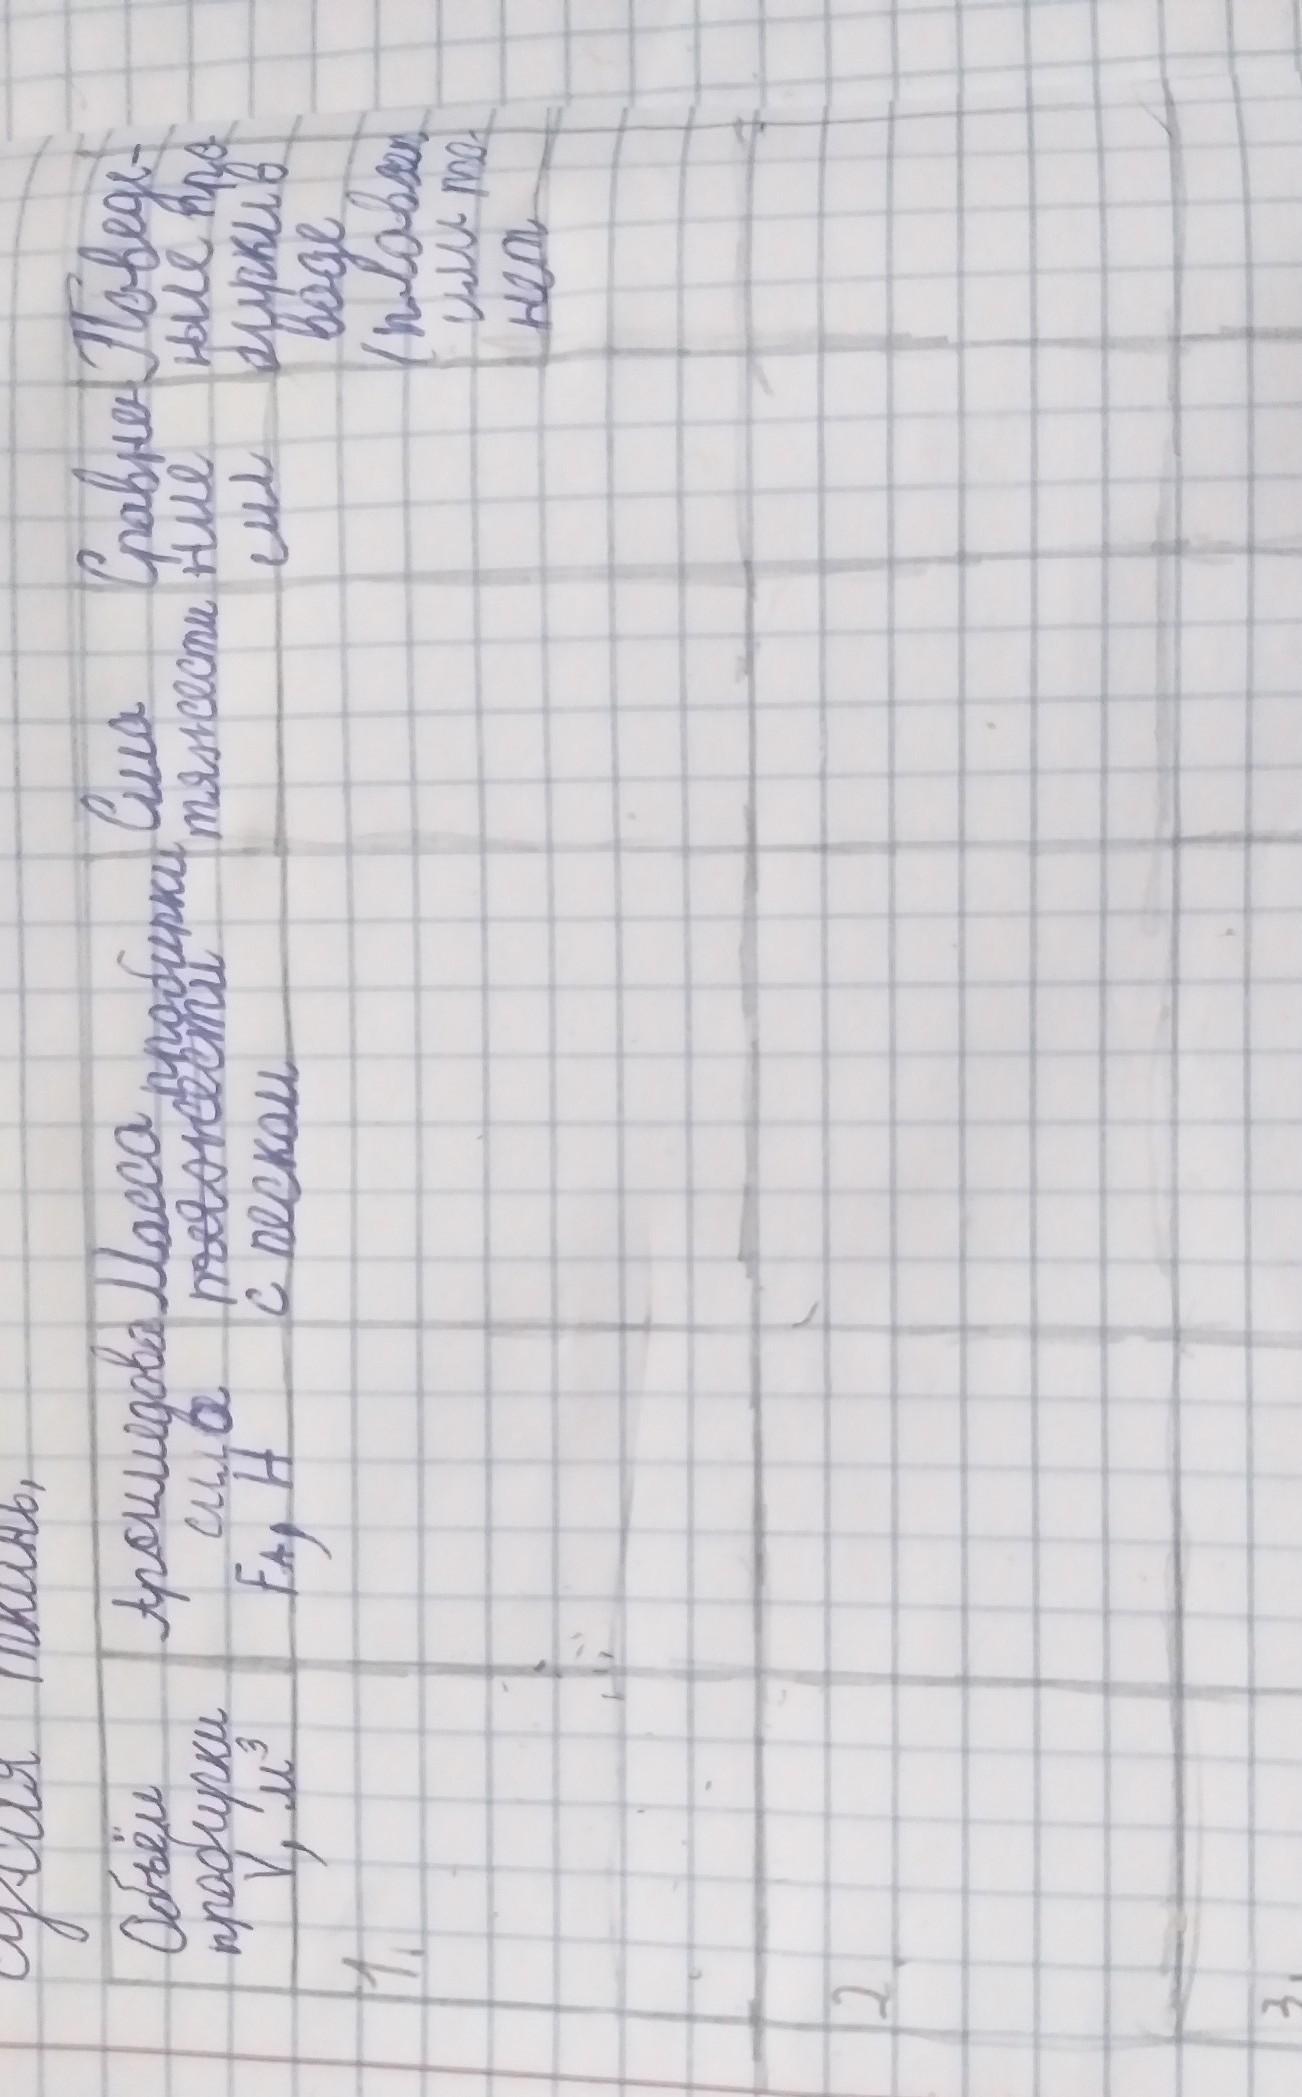 сухая ткань,
Объём
пробирки
V, м³
Архимедова
сила
Fₐ, Н
Масса пробирки
тяжести
с песком
Сила
тяжести
Сравне-
ние
сил
Поведе-
ние про
бирки в
воде
(плавает
или то-
нет
1.
2
3.